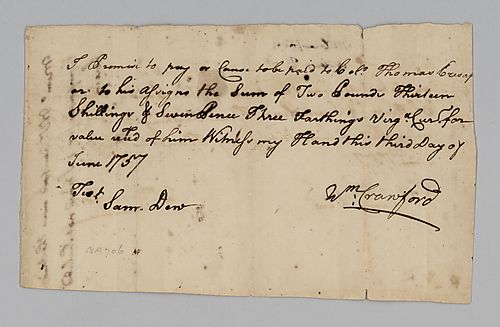 I Promise to pay or Cause to be paid to Colo. Thomas Cresap
or to his Assigns the Sum of Two Pounds Thirteen
Shillings & Seven Pence Three Farthings Virga. Curt. for
value recd of him Witness my Hand this third Day of
June 1757
Test.
Sam. Dew
Wm. Crawford
NA706